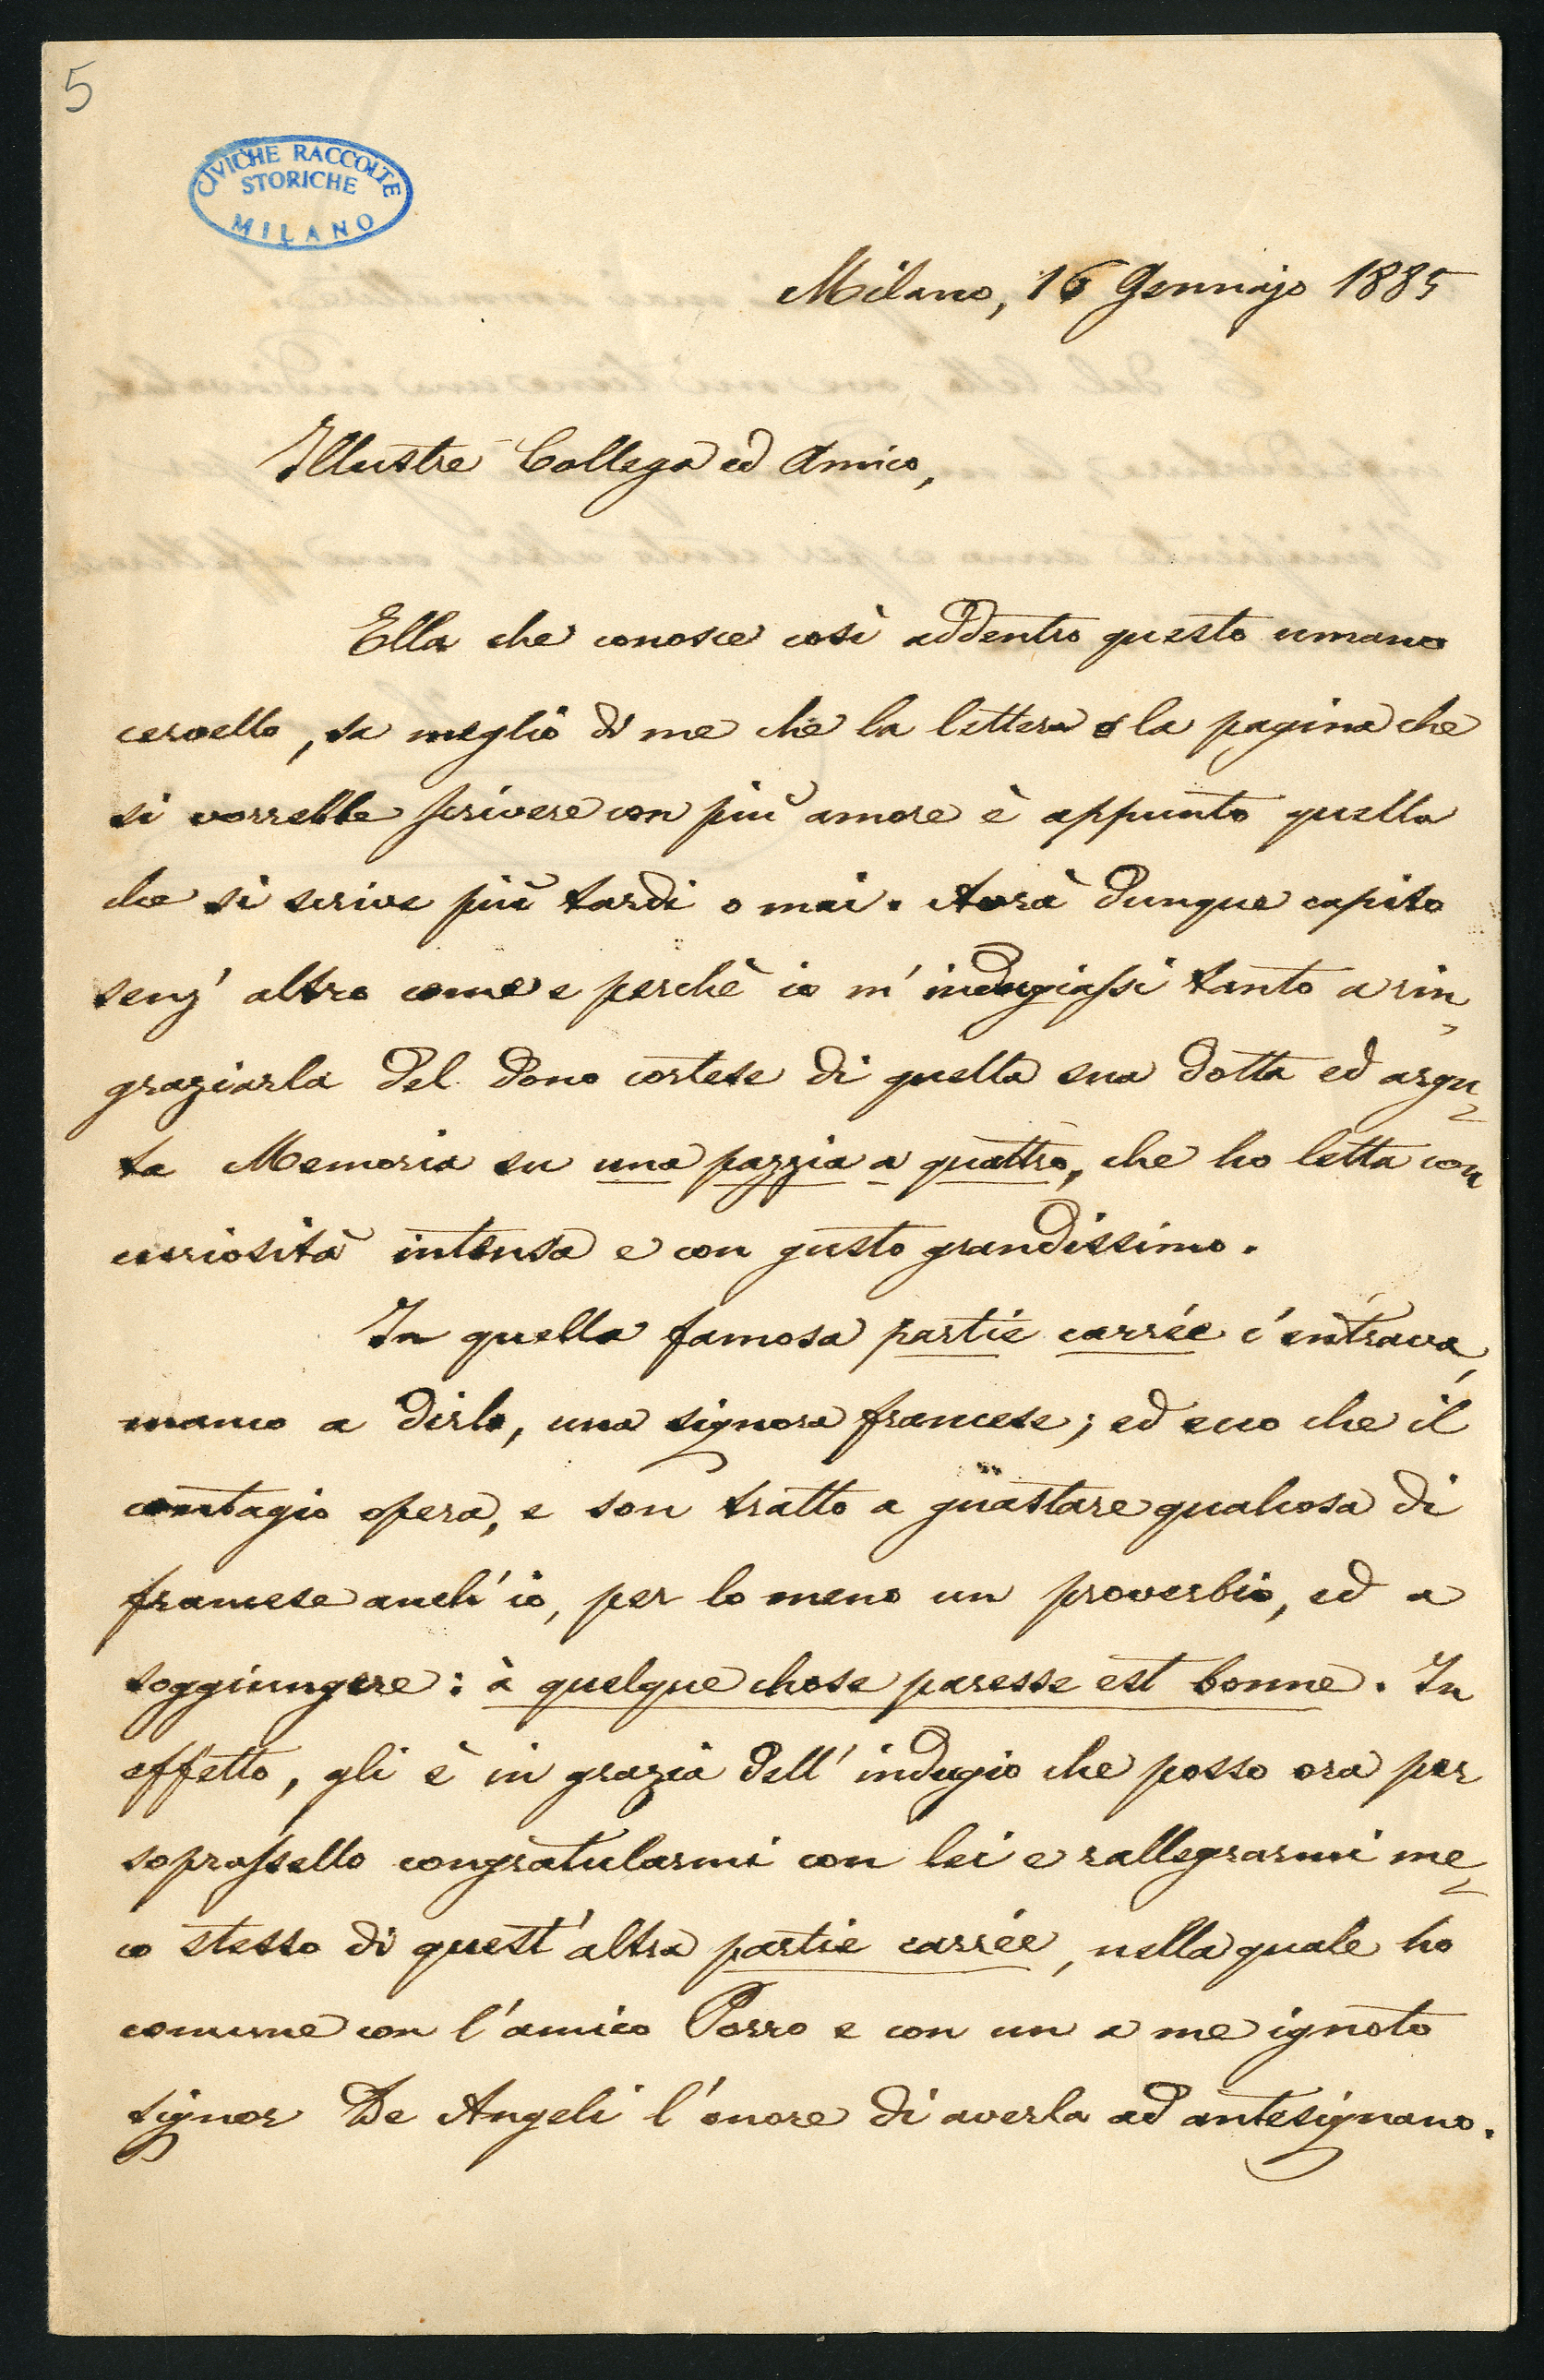 5
CIVICHE RACCOLTE
STORICHE
MILANO
Milano, 16 Gennajo 1885
Illustre Collega ed Amico,
Ella che conosce così addentro questo umano
cervello, sa meglio di me che la lettera o la pagina che
si vorrebbe scrivere con più amore è appunto quella
che si scrive più tardi o mai. Avrà dunque capito
senz' altro come e perchè io m' indugiassi tanto a rin-
graziarla del dono cortese di quella sua dotta ed argu-
ta Memoria su una pazzia a quattro, che ho letta con
curiosità intensa e con gusto grandissimo.
In quella famosa partie carrée c' entrava,
manco a dirlo, una signora francese; ed ecco che il
contagio opera, e son tratto a guastare qualcosa di
francese anch' io, per lo meno un proverbio, ed a
soggiungere: à quelque chose paresse est bonne. In
effetto, gli è in grazia dell' indugio che posso ora per
soprassello congratularmi con lei e rallegrarmi me-
co stesso di quest' altra partie carrée, nella quale ho
comune con l' amico Porro e con un a me ignoto
signor De Angeli l' onore di averla ad antesignano.